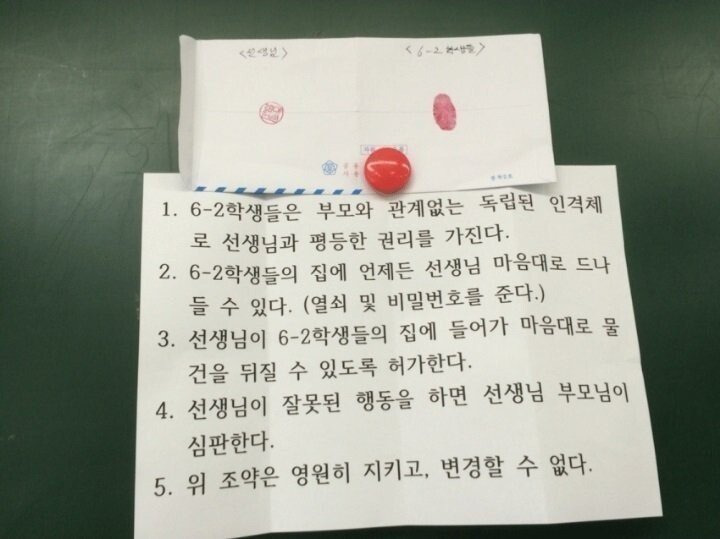 <선생님> <6-2 학생들>
1. 6-2학생들은 부모와 관계없는 독립된 인격체
로 선생님과 평등한 권리를 가진다.
2. 6-2학생들의 집에 언제든 선생님 마음대로 드나
들 수 있다. (열쇠 및 비밀번호를 준다.)
3. 선생님이 6-2학생들의 집에 들어가 마음대로 물
건을 뒤질 수 있도록 허가한다.
4. 선생님이 잘못된 행동을 하면 선생님 부모님이
심판한다.
5. 위 조약은 영원히 지키고, 변경할 수 없다.